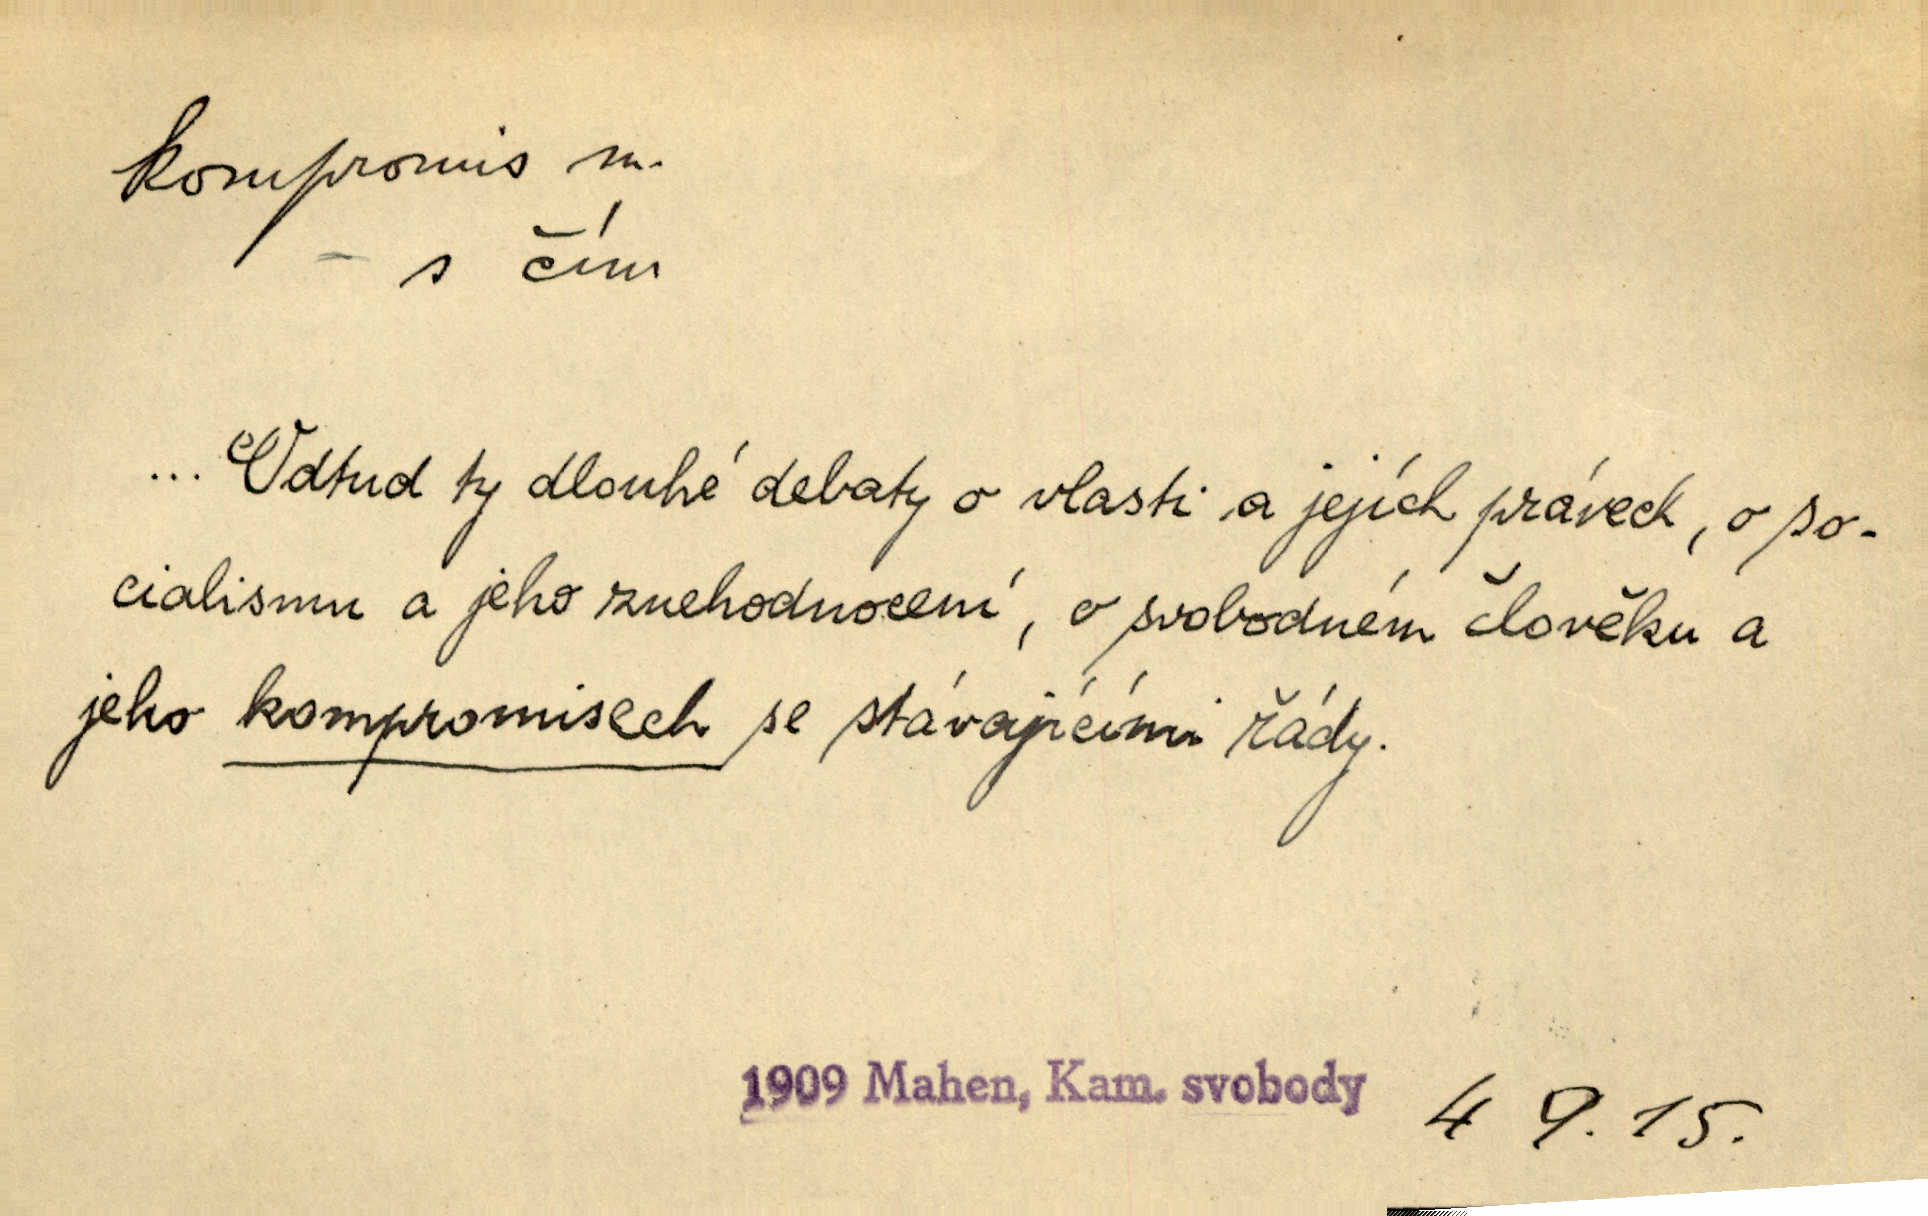 kompromis m.
– s čím
... Odtud ty dlouhé debaty o vlasti a jejích právech, o so-
cialismu a jeho znehodnocení, o svobodném člověku a
jeho kompromisech se stávajícími řády.
1909 Mahen, Kam. svobody 49. 15.